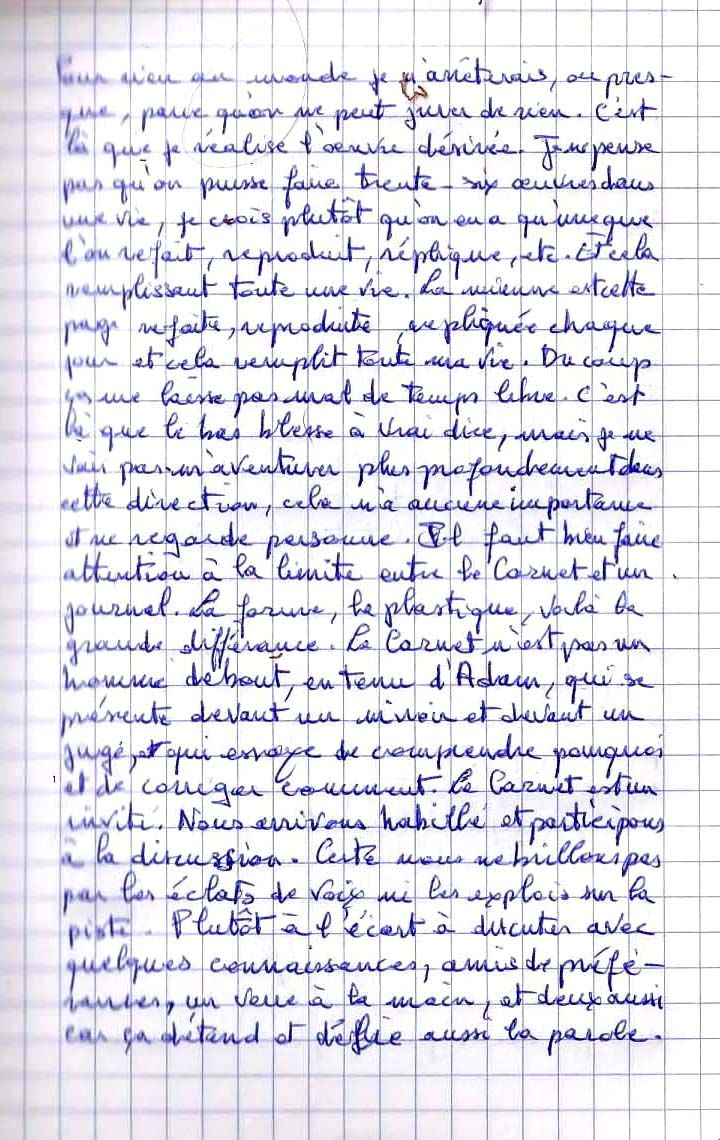 Pour rien au monde je n'arrêterais, ou pres-
que, parce qu'on ne peut jurer de rien. C'est
là que je réalise l'oeuvre désirée. Je ne pense
pas qu'on puisse faire trente-six œuvres dans
une vie, je crois plutôt qu'on en a qu'une que
l'on refait, reproduit, réplique, etc. Et cela
remplissant toute une vie. La mienne est cette
page refaite, reproduite, repliquée chaque
jour et cela remplit toute ma vie. Du coup
ça me laisse pas mal de temps libre. C'est
là que le bas blesse à vrai dire, mais je ne
vais pas m'aventurer plus profondément dans
cette direction, cela n'a aucune importance
et ne regarde personne. Il faut bien faire
attention à la limite entre le Carnet et un
journal. La forme, la plastique, voilà la
grande différance. Le Carnet n'est pas un
homme debout, en tenu d'Adam, qui se
présente devant un miroir et devant un
jugé, et qui essaye de comprendre pourquoi
et de corriger comment. Le Carnet est un
invité. Nous arrivons habillé et participons
à la discussion. Certe nous ne brillons pas
par les éclats de voix ni les explois sur la
piste. Plutôt à l'écart à discuter avec
quelques connaissances, amis de préfé-
rances, un verre à la main, et deux aussi
car ça détend et délie aussi la parole.